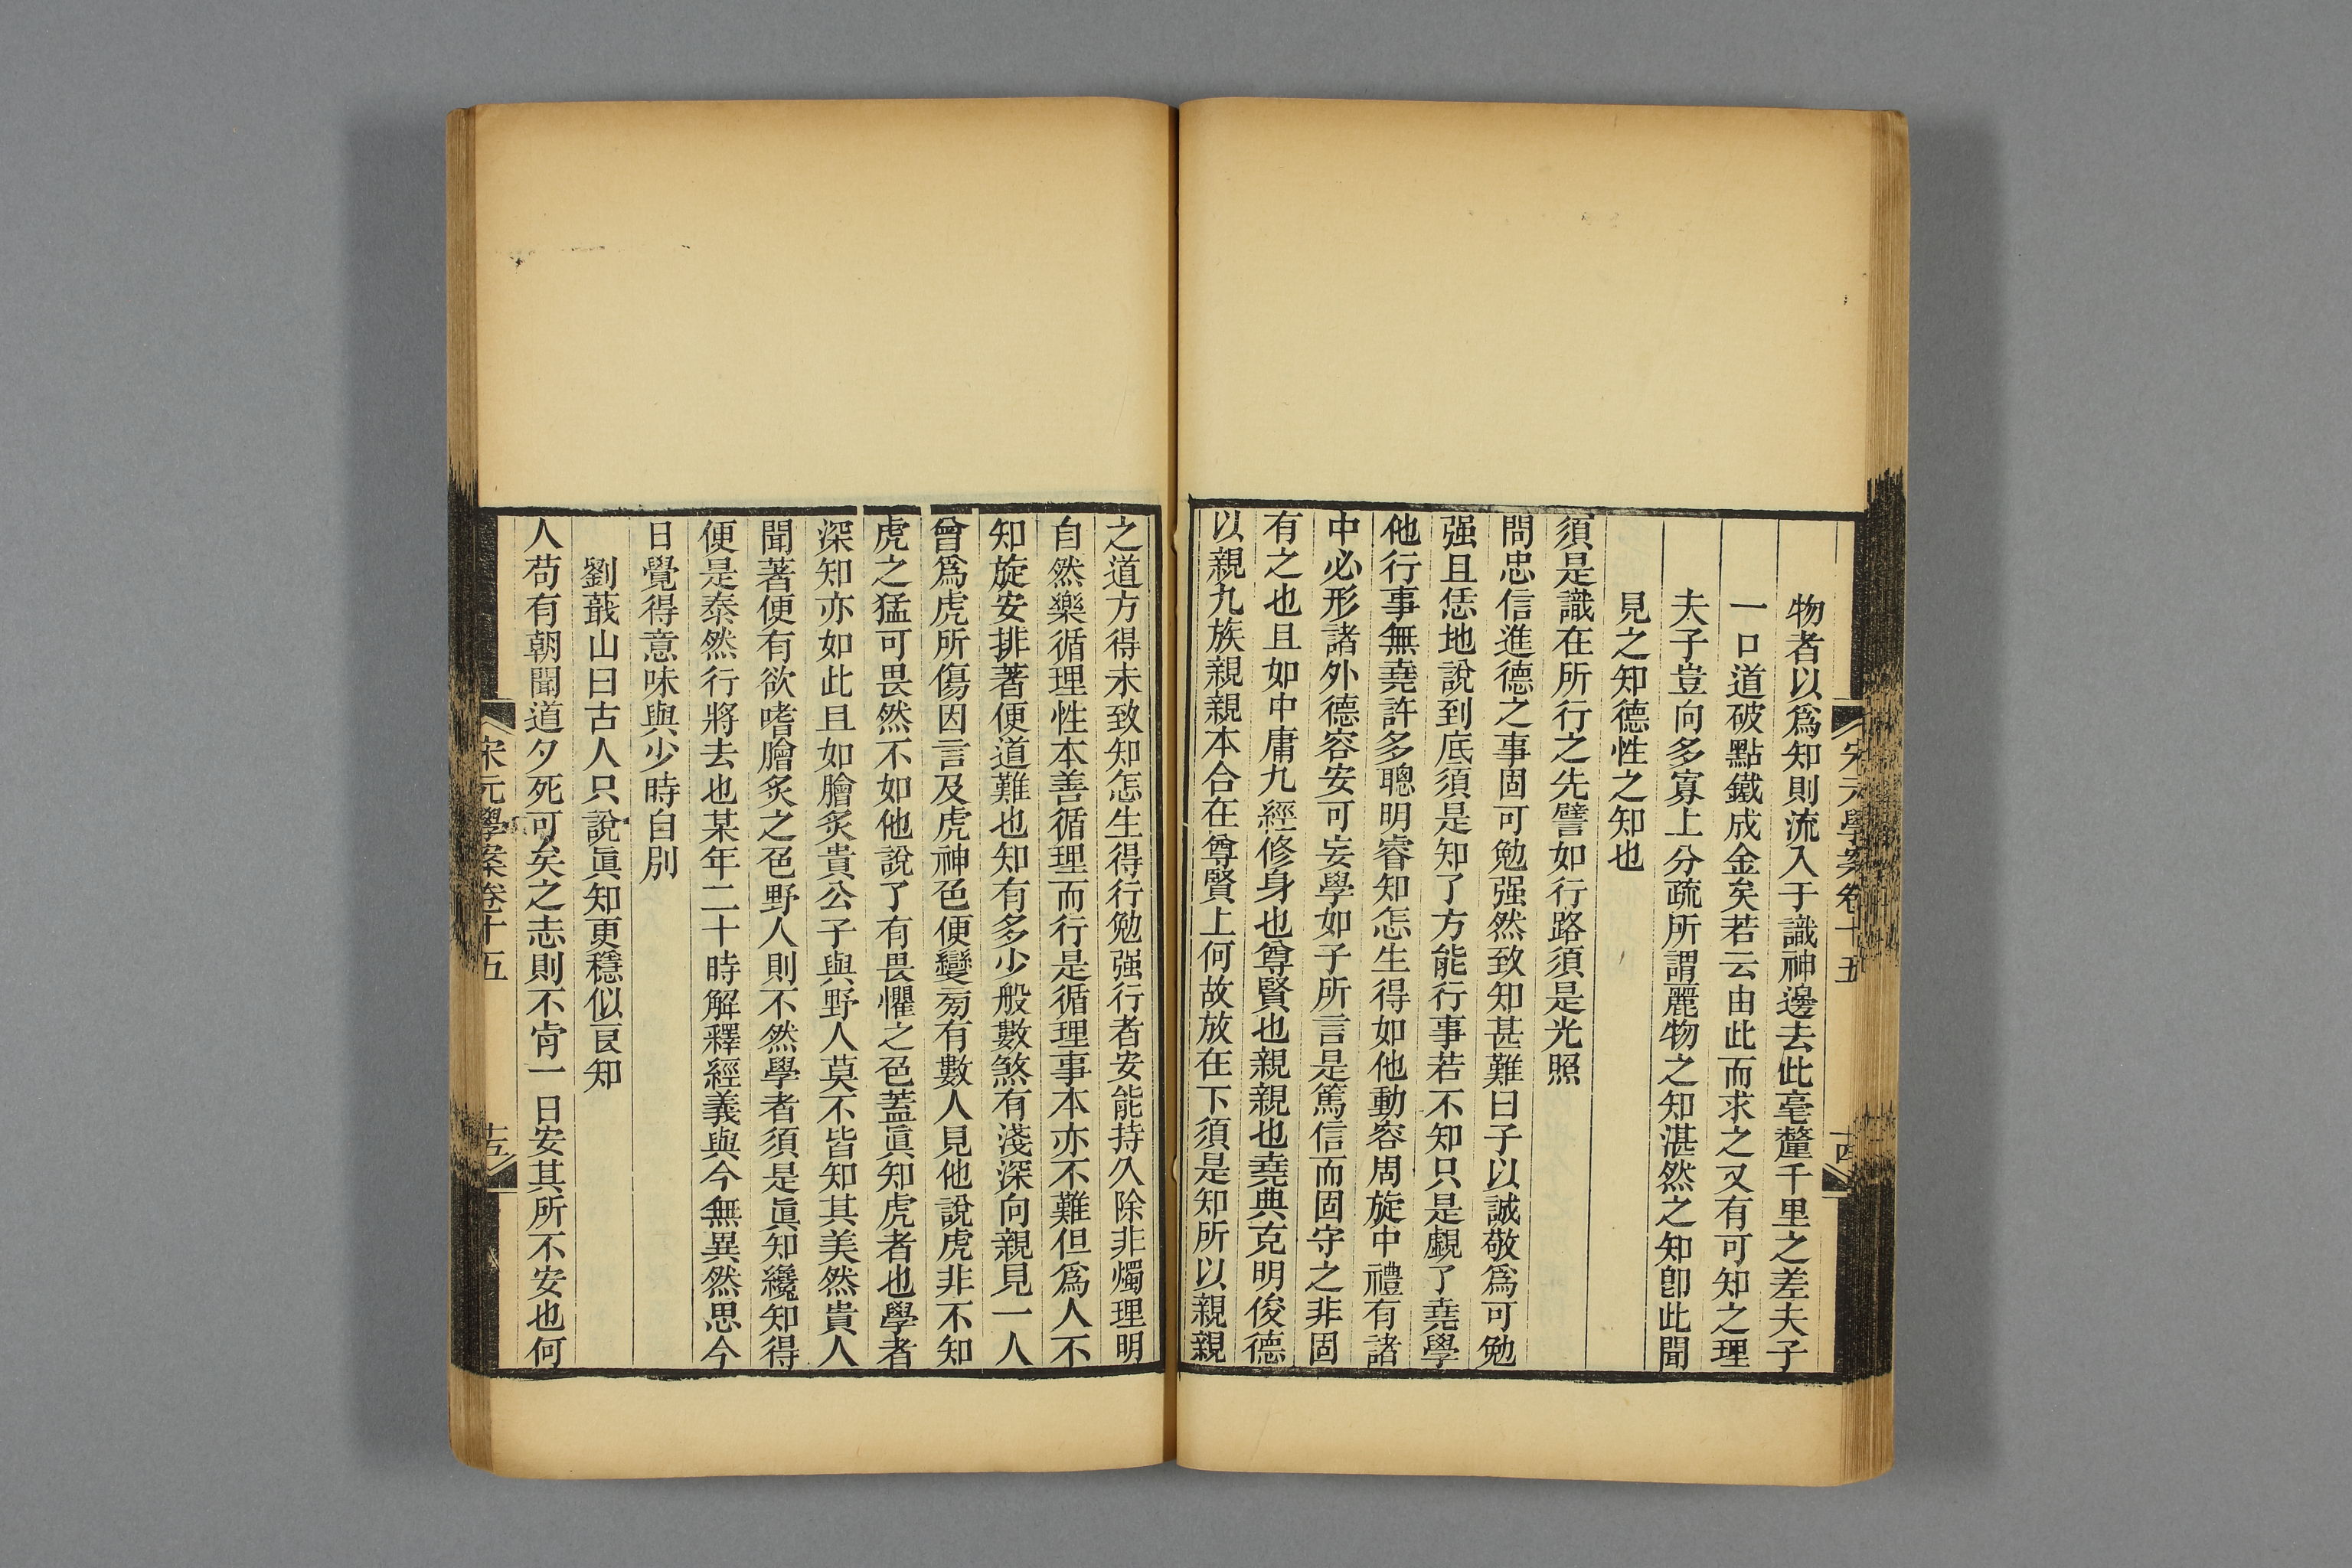 宋元學案卷十五
物者以爲知則流入于識神邊去此毫釐千里之差夫子
一口道破點鐵成金矣若云由此而求之又有可知之理
夫子豈向多寡上分疏所謂麗物之知湛然之知卽此聞
見之知德性之知也
須是識在所行之先譬如行路須是光照
問忠信進德之事固可勉强然致知甚難曰子以誠敬爲可勉
强且恁地說到底須是知了方能行事若不知只是覷了堯學
他行事無堯許多聰明睿知怎生得如他動容周旋中禮有諸
中必形諸外德容安可妄學如子所言是篤信而固守之非固
有之也且如中庸九經修身也尊賢也親親也堯典克明俊德
以親九族親親本合在尊賢上何故放在下須是知所以親親
之道方得未致知怎生得行勉强行者安能持久除非燭理明
自然樂循理性本善循理而行是循理事本亦不難但爲人不
知旋安排著便道難也知有多少般數煞有淺深向親見一人
曾爲虎所傷因言及虎神色便變旁有數人見他說虎非不知
虎之猛可畏然不如他說了有畏懼之色蓋眞知虎者也學者
深知亦如此且如膾炙貴公子與野人莫不皆知其美然貴人
聞著便有欲嗜膾炙之色野人則不然學者須是眞知纔知得
便是泰然行將去也某年二十時解釋經義與今無異然思今
日覺得意味與少時自別
劉蕺山曰古人只說眞知更穩似良知
人苟有朝聞道夕死可矣之志則不肯一日安其所不安也何
宋元學案卷十五